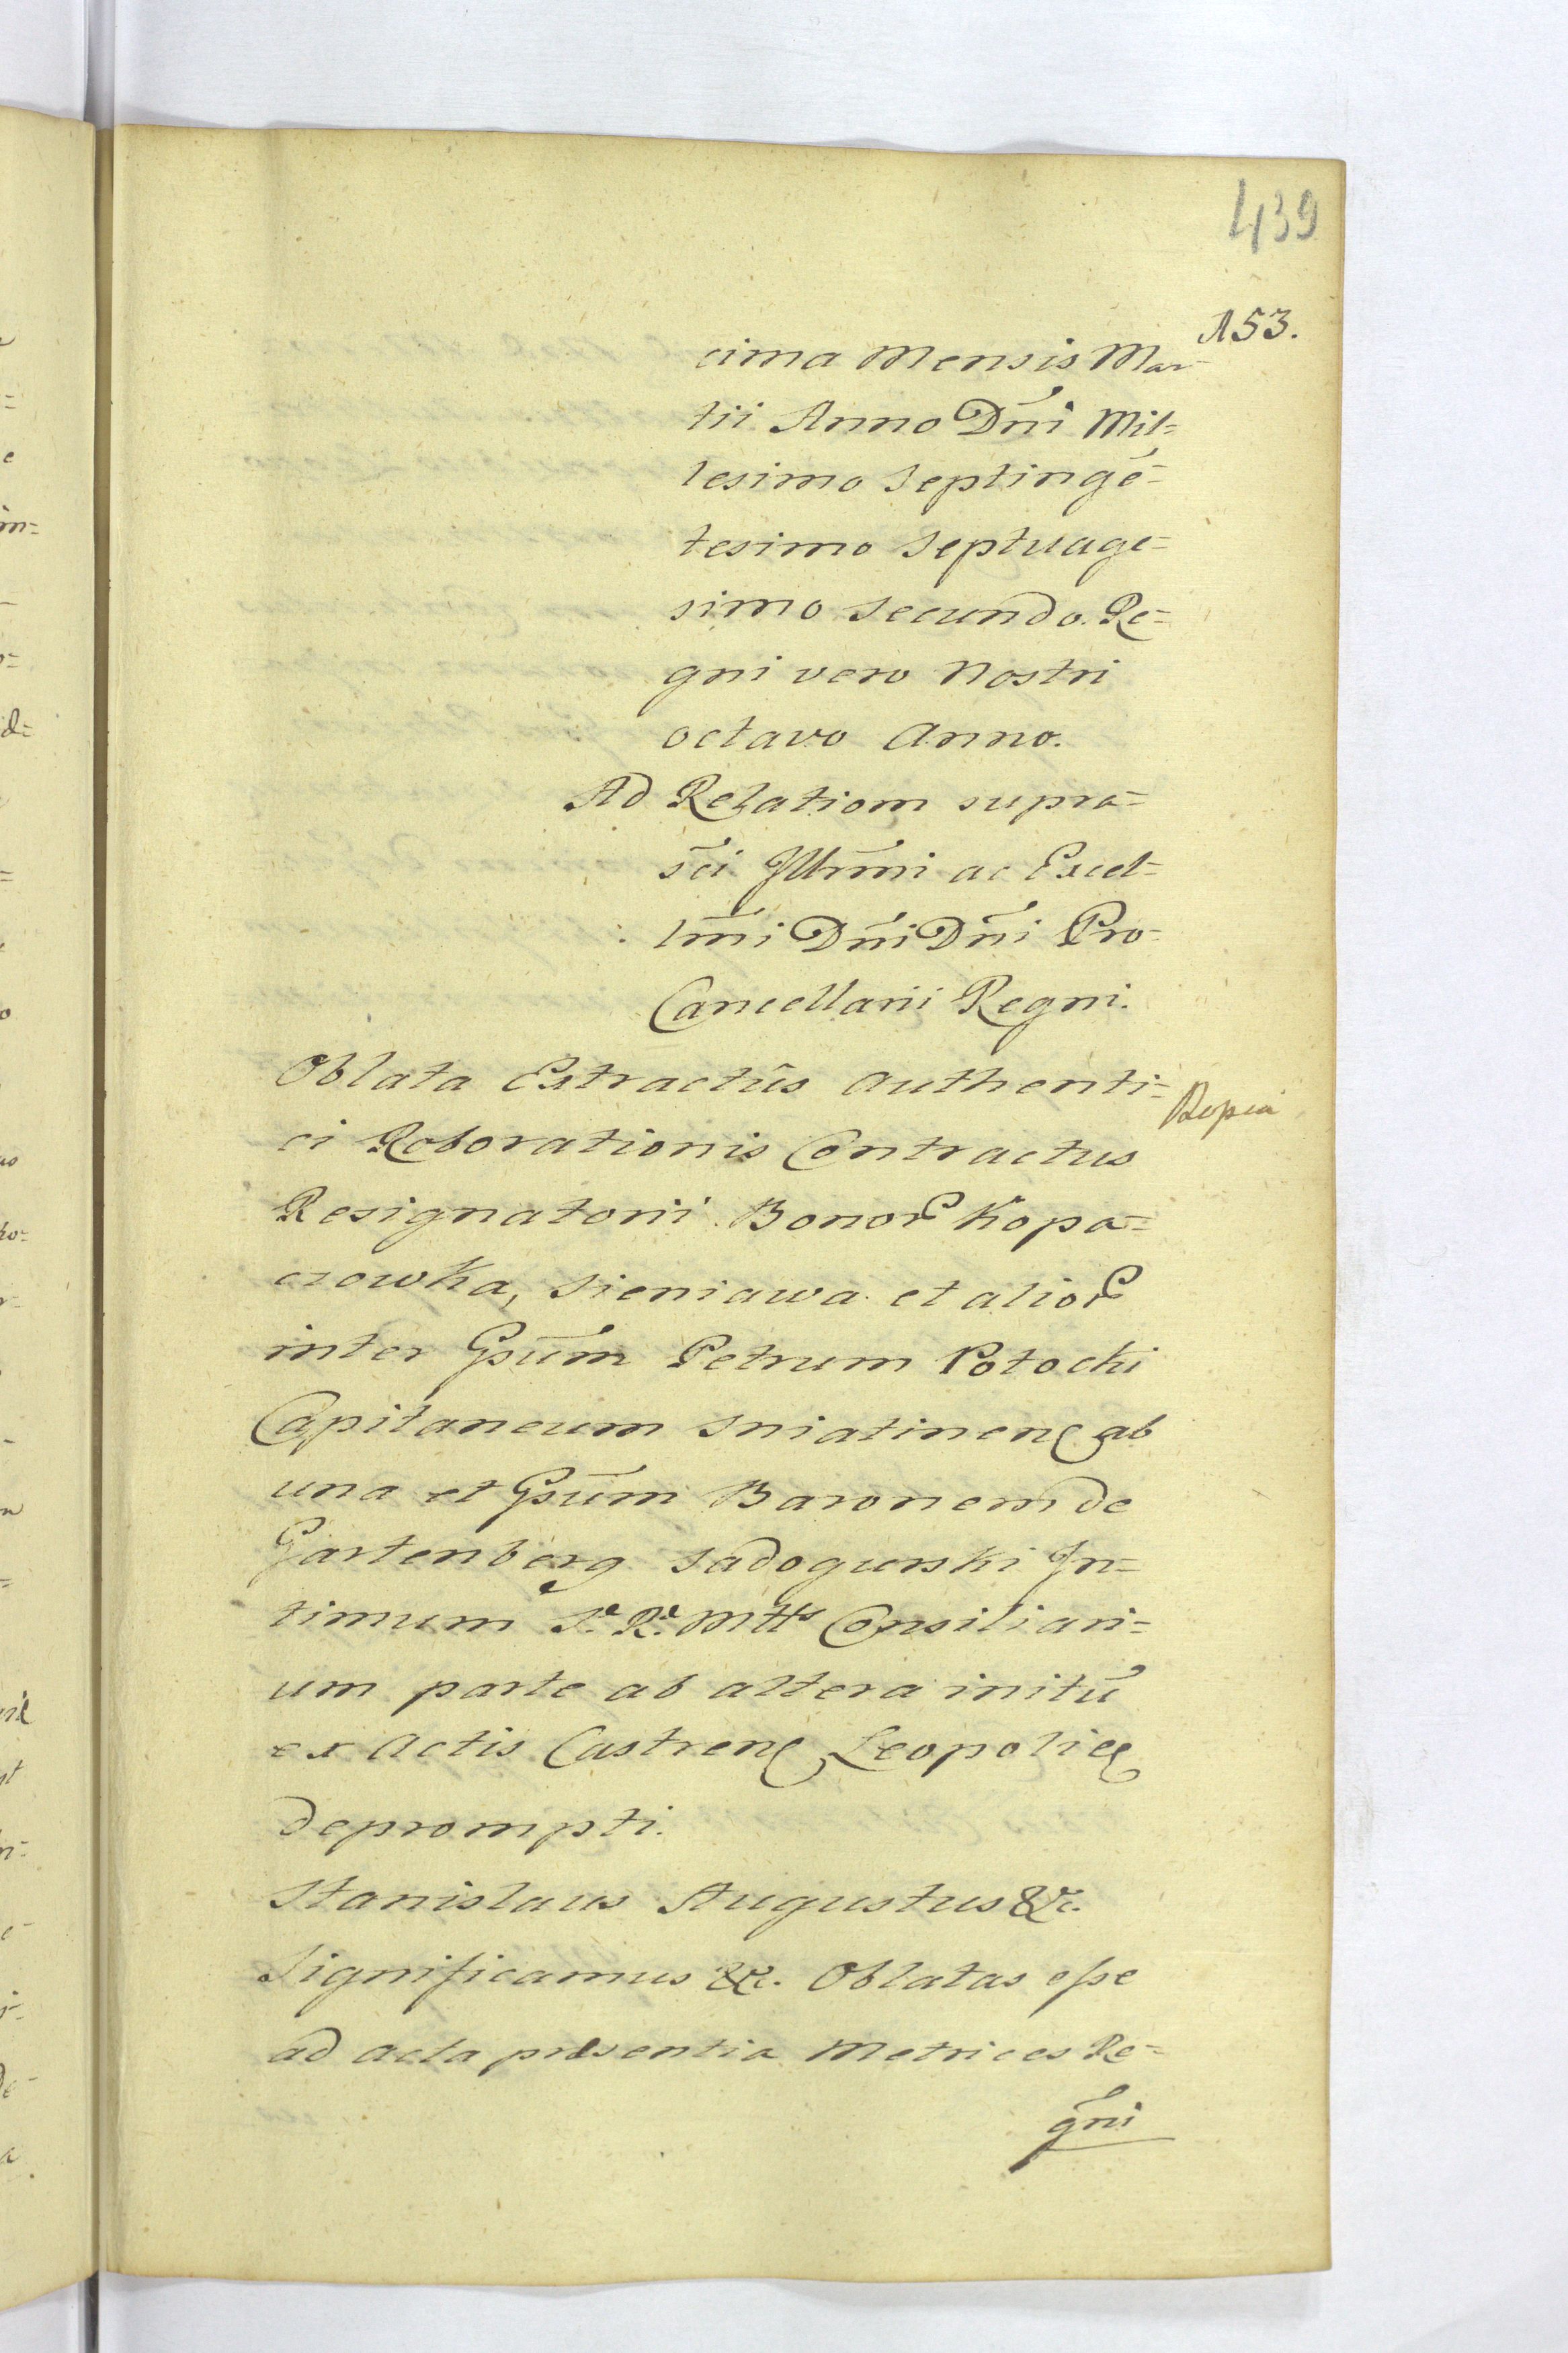 439
153.
cima Mensis Mar-
tii Anno Dñi Mil=
lesimo Septingē=
tesimo Septuage=
simo Secundo. Re=
gni vero Nostri
octavo Anno.
Ad Relationm supra=
s̃ci Jllr̃mi ac Excel=
lm̃i Dñi Dñi Pro-
Cancellarii Regni.
Oblata Extractûs Authenti=
ci Roborationis Contractus
Resignatorii Bonor Kopa=
czowka, Sieniawa et alior
inter Gsũm Petrum Potocki
Capitaneum Sniatinen ab
una et Gsũm Baronem de
Gartenberg Sadogurski In=
timum S. R. Mtts Consiliari=
um parte ab altera initũ
ex Actis Castren Leopolien
deprompti.
Stanislaus Augustus &c.
Significamus &c. Oblatas esse
ad Acta præsentia Metrices Re=
gñi